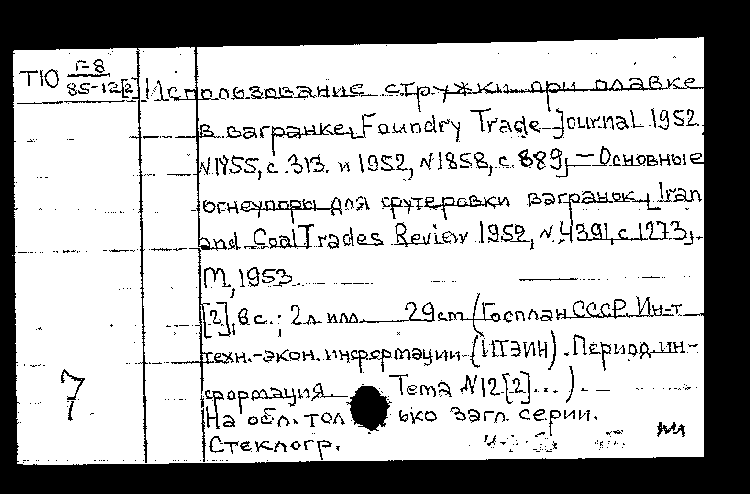 Т10 Г-8
85-12[2]
Использование стружки при плавке
в вагранке, Foundry Trade Journal 1952,
N1855, с. 313. и 1952, N1858, с. 889, — Основные
огнеупоры для футеровки вагранок, Iran
and Coal Trades Review 1952, N.4391, с.1273,
М, 1953
[2], 6 с.; 2 л. илл. 29см (Госплан СССР. Ин-т
техн.-экон. информации (ИТЭИН). Период. ин-
формация. Тема N12[2]...). —
7
На обл. только загл. серии.
Стеклогр.